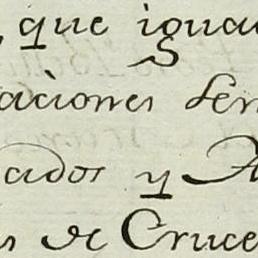 , que igua
aciones se
cados y A
s de Cruce